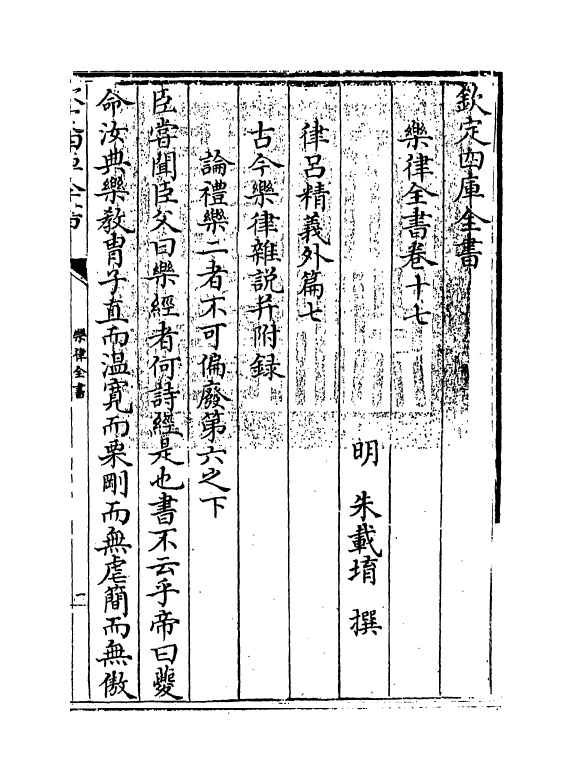 欽定四庫全書
樂律全書卷十七
明 朱載堉 撰
律呂精義外篇七
古今樂律雜説并附録
論禮樂二者不可偏廢第六之下
臣嘗聞臣父曰樂經者何詩經是也書不云乎帝曰夔
命汝典樂教胄子直而温寛而栗剛而無虐簡而無傲
樂律全書